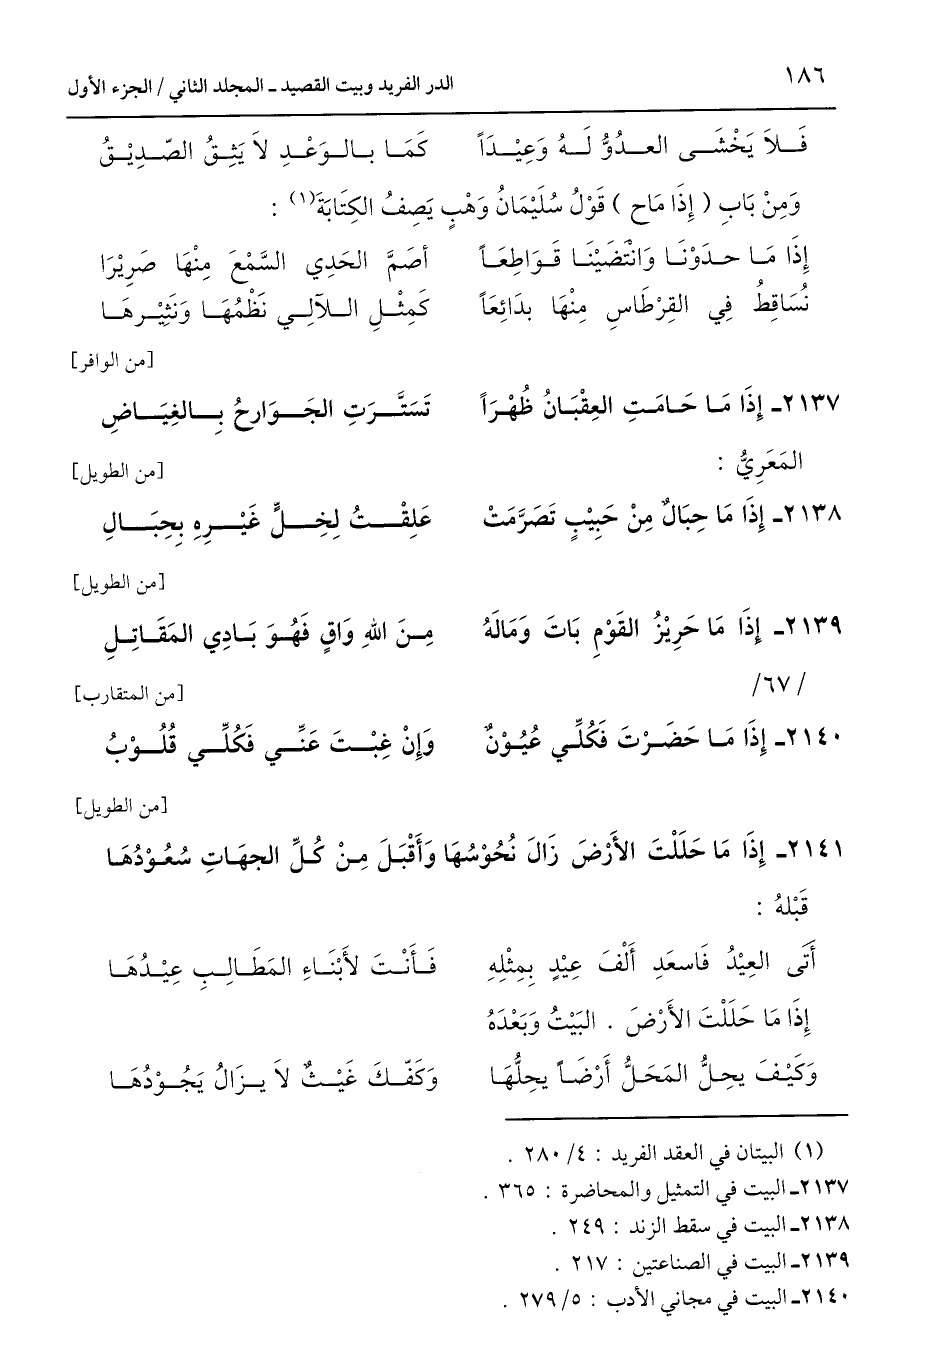 ١٨٦ الدر الفريد وبيت القصيد ـ المجلد الثاني / الجزء الأول
فَلاَ يَخْشَى العدُوُّ لَهُ وَعِيْدَاً كَمَا بالوَعْدِ لاَ يَثِقُ الصّدِيْقُ
وَمِنْ بَابِ ( إِذَا مَاح ) قَوْلُ سُلَيْمَانُ وَهْبٍ يَصِفُ الكِتَابَةَ(١) :
إِذَا مَا حدَوْنَا وَانْتَضَيْنَا قَوَاطِعَاً أصَمَّ الحَدِي السَّمْعَ مِنْهَا صَرِيْرَا
نُسَاقِطُ فِي القِرْطَاسِ مِنْهَا بدَائِعَاً كَمِثْلِ اللآلِي نَظْمُهَا وَنَثِيْرهَا
[من الوافر]
٢١٣٧ـ إِذَا مَا حَامَتِ العِقْبَانُ ظُهْرَاً تَسَتَّرَتِ الجَوَارحُ بِالغِيَاضِ
المَعَرِيُّ :
[من الطويل]
٢١٣٨ـ إِذَا مَا حِبَالٌ مِنْ حَبِيْبٍ تَصَرَّمَتْ عَلِقْتُ لِخلٍّ غَيْرِهِ بِحِبَالِ
[من الطويل]
٢١٣٩ـ إِذَا مَا حَرِيْزُ القَوْمِ بَاتَ وَمَالَهُ مِنَ اللهِ وَاقٍ فَهُوَ بَادِي المَقَاتِلِ
/٦٧/
[من المتقارب]
٢١٤٠ـ إِذَا مَا حَضَرْتَ فَكُلِّي عُيُوْنٌ وَإِنْ غِبْتَ عَنِّي فَكُلِّي قُلُوْبُ
[من الطويل]
٢١٤١ـ إِذَا مَا حَلَلْتَ الأَرْضَ زَالَ نُحُوْسُهَا وَأَقْبَلَ مِنْ كُلِّ الجِهَاتِ سُعُوْدُهَا
قَبْلهُ :
أَتَى العِيْدُ فَاسعَدِ أَلْفَ عِيْدٍ بِمِثْلِهِ فَأَنْتَ لأَبْنَاءِ المَطَالِبِ عِيْدُهَا
إِذَا مَا حَلَلْتَ الأَرْضَ . البَيْتُ وَبَعْدَهُ
وَكَيْفَ يحِلُّ المَحَلُّ أَرْضَاً يحِلُّهَا وَكَفّكَ غَيْثٌ لاَ يزَالُ يَجُوْدُهَا
(١) البيتان في العقد الفريد : ٤/ ٢٨٠ .
٢١٣٧ـ البيت في التمثيل والمحاضرة : ٣٦٥ .
٢١٣٨ـ البيت في سقط الزند : ٢٤٩ .
٢١٣٩ـ البيت في الصناعتين : ٢١٧ .
٢١٤٠ـ البيت في مجاني الأدب : ٥/ ٢٧٩ .